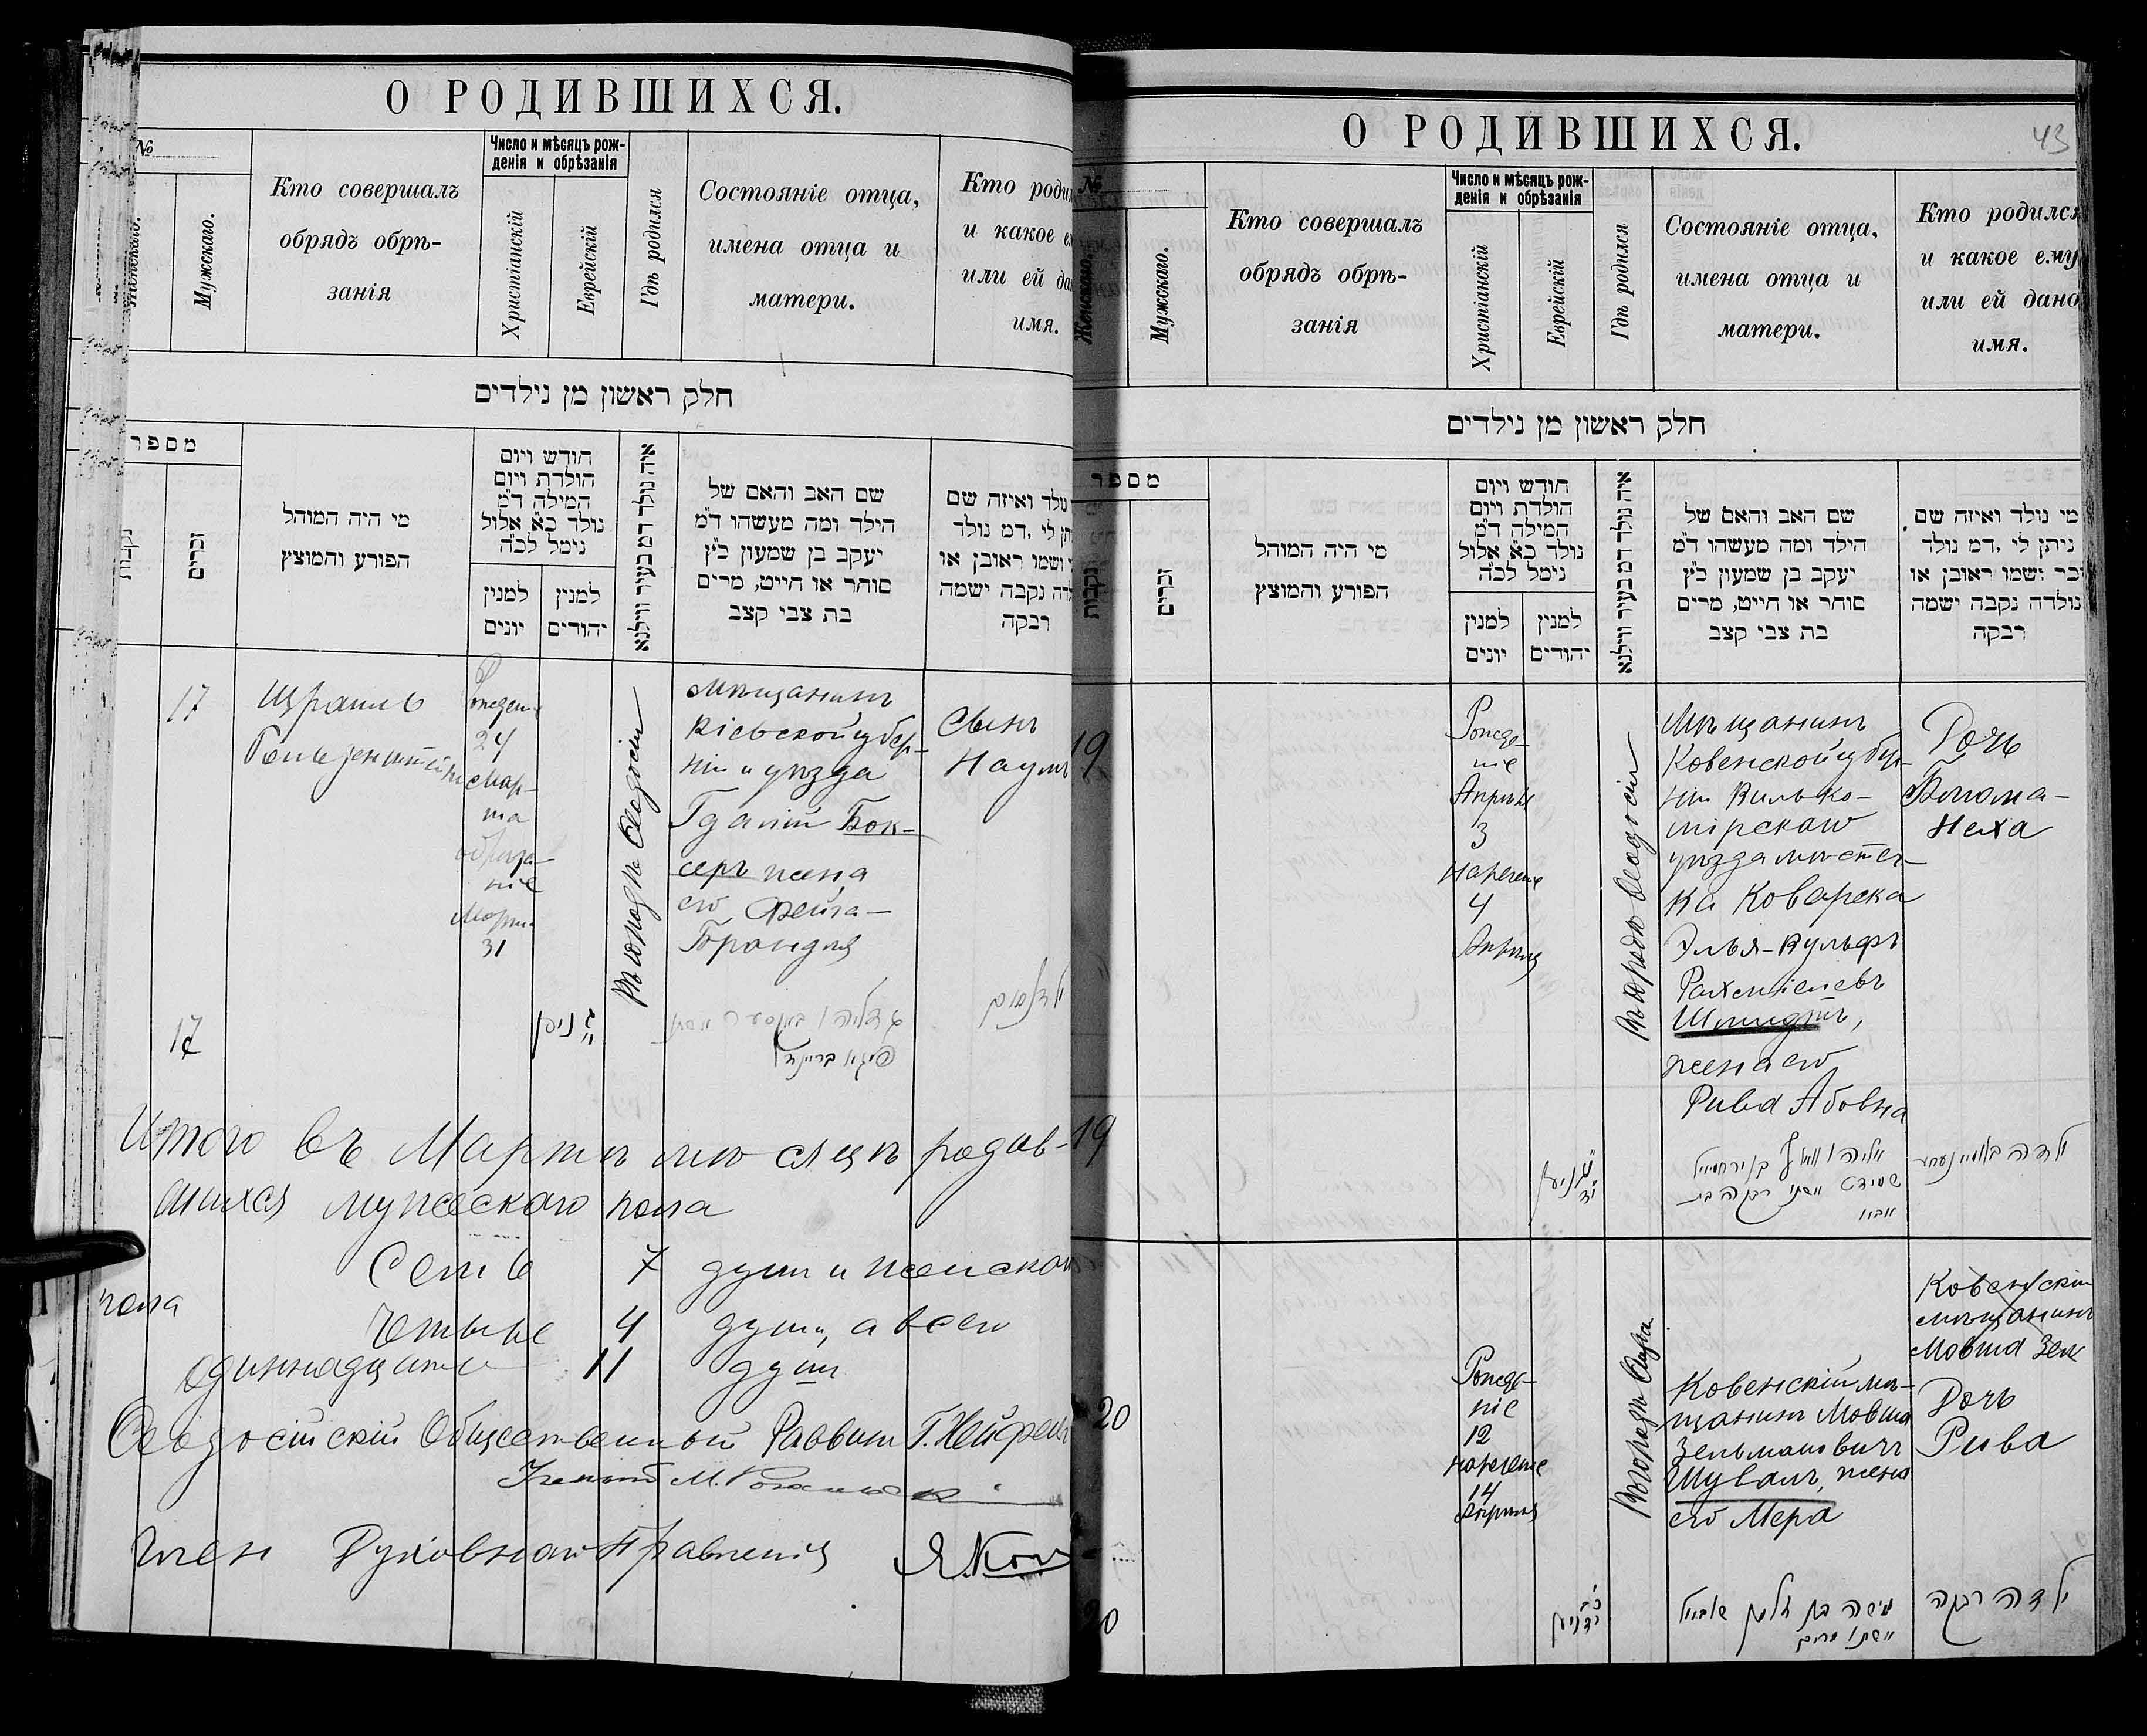 О РОДИВШИХСЯ.
№
Женскаго.
Мужскаго.
Кто совершалъ
обрядъ обрѣ-
занія
Число и мѣсяцъ рож-
денія и обрѣзанія
Христіанскій
Еврейскій
Гдѣ родился
Состояніе отца,
имена отца и
матери.
Кто роди
и какое е
или ей да
имя.
חלק ראשון מן נילדים
מספר
נקבות
זכרים
מי היה המוהל
הפורע והמוצץ
חודש ויום
הולדת ויום
המילה ד״מ
נולד כ״א אלול
נימל לכ״ה
למנין
יונים
למנין
יהודים
איה נולד דמ בעיר ווילנא
שם האב והאם של
הילד ומה מעשהו ד״מ
יעקב בן שמעון כ״ץ
סוחר או חייט, מרים
בת צבי קצב
נולד ואיזה שם
תן לי ,דמ נולד
ושמו ראובן או
לדה נקבה ישמה
רבקה
17
Израиль
Гольденштейнъ
Рожденіе
24
Мар-
та
обрѣза-
ніе
Марта
31
Въ городѣ Ѳеодосіи
Мѣщанинъ
Кіевской губер-
ніи и уѣзда
Гдалій Бок-
серъ жена
его Фейга-
Брандля
Сынъ
Наумъ
17
ג׳ ניסן
פייגא בריינדל
Итого въ Мартѣ мѣсяцѣ родив-
шихся мужескаго пола
Семь 7 душъ и женскаго
пола
четыре 4 души, а всего
одиннадцать 11 душъ
Ѳеодосійскій Общественный Раввинъ Г. Хейфецъ
Ученый М.
Членъ Духовнаго Правленія Я. Ког
О РОДИВШИХСЯ.
43
№
Женскаго.
Мужскаго.
Кто совершалъ
обрядъ обрѣ-
занія
Число и мѣсяцъ рож-
денія и обрѣзанія
Христіанскій
Еврейскій
Гдѣ родился
Состояніе отца,
имена отца и
матери.
Кто родился
и какое ему
или ей дано
имя.
חלק ראשון מן נילדים
מספר
נקבות
זכרים
מי היה המוהל
הפורע והמוצץ
חודש ויום
הולדת ויום
המילה ד״מ
נולד כ״א אלול
נימל לכ״ה
למנין
יונים
למנין
יהודים
איה נולד דמ בעיר ווילנא
שם האב והאם של
הילד ומה מעשהו ד״מ
יעקב בן שמעון כ״ץ
סוחר או חייט, מרים
בת צבי קצב
מי נולד ואיזה שם
ניתן לי ,דמ נולד
זכר ישמו ראובן או
נולדה נקבה ישמה
רבקה
19
Рожде-
ніе
Апрѣля
3
Нареченіе
4
Апрѣля
Въ городѣ Ѳеодосіи
Мѣщанинъ
Ковенской губер-
ніи Вилько-
мірскаго
уѣзда мѣстеч-
ка Коварска
Элья-Вульфъ
Рахміелевъ
Шмидтъ,
жена его
Рива Абовна
Дочь
Блюма-
Неха
19
אליהו וואלף בן ירחמיאל
שמידט ואשתו רבקה בת
אבא
ילדה בלומא נעחא
20
Рожде-
ніе
12
Нареченіе
14
Апрѣля
Ковенскій мѣ-
щанинъ Мовша
Зельмановичъ
Шуваль, жена
его Мера
Ковенскій
мѣщанинъ
Мовша Зель
Дочь
Рива
ואשתו מרים
ילדה רבקה